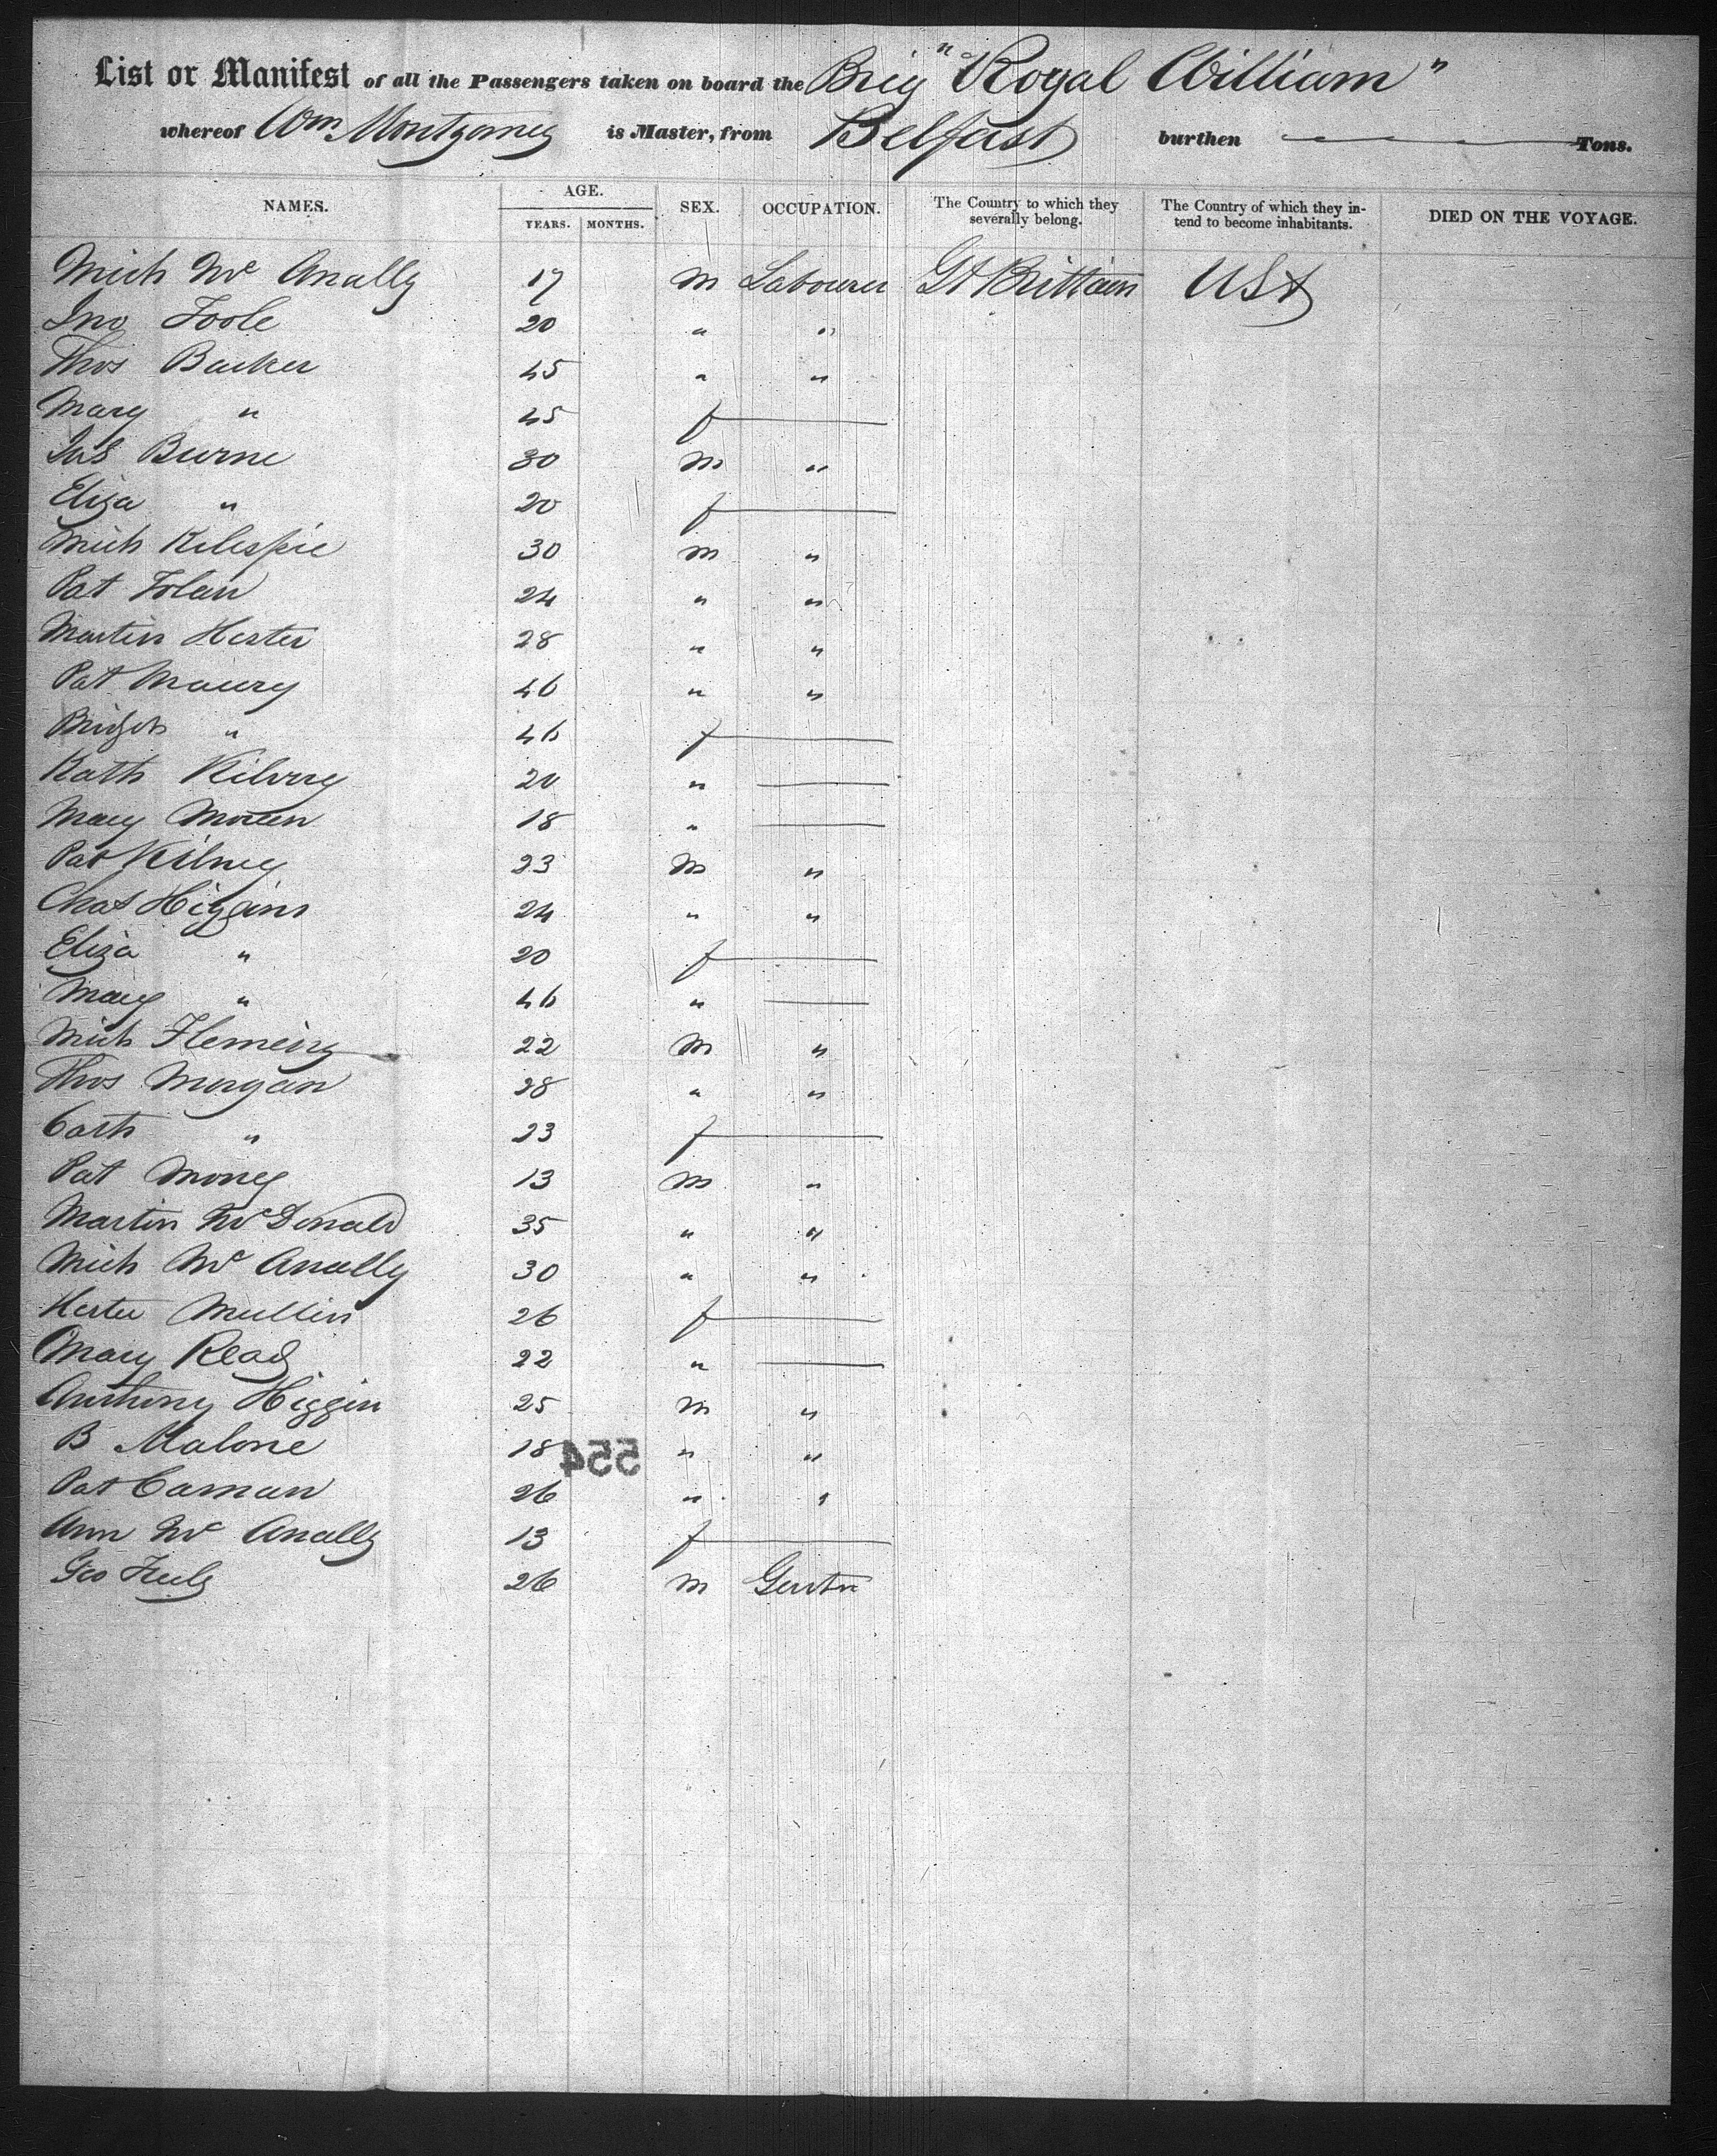 List or Manifest of all the Passengers taken on board the Brig "Royal William"
whereof Wm Montgomery is Master, from Belfast burthen Tons.
NAMES. AGE. YEARS. MONTHS. SEX. OCCUPATION. The Country to which they severally belong. The Country of which they intend to become inhabitants. DIED ON THE VOYAGE.
Mich Mc Anally 17 m Labourer Gt Brittain USA
Jno Toole 20 " "
Thos Barker 45 " "
Mary " 45 f
Jas Burne 30 m "
Eliza " 20 f
Mich Kilespie 30 m "
Pat Tolan 24 " "
Martin Hester 28 " "
Pat 46 " "
Bridget " 46 f
Kath 20 "
Mary 18 "
Pat 23 m "
Chas Higgins 24 " "
Eliza " 20 f
Mary " 46 "
Mich Fleming 22 m "
Thos Morgan 28 " "
Cath " 23 f
Pat Money 13 m "
Martin McDonald 35 " "
Mich Mc Anally 30 " "
Hester Mullin 26 f
Mary Read 22 "
Anthony Higgin 25 m "
B Malone 18 " "
554
Pat 26 " "
Ann Mc Anally 13 f
Geo 26 m Gentn